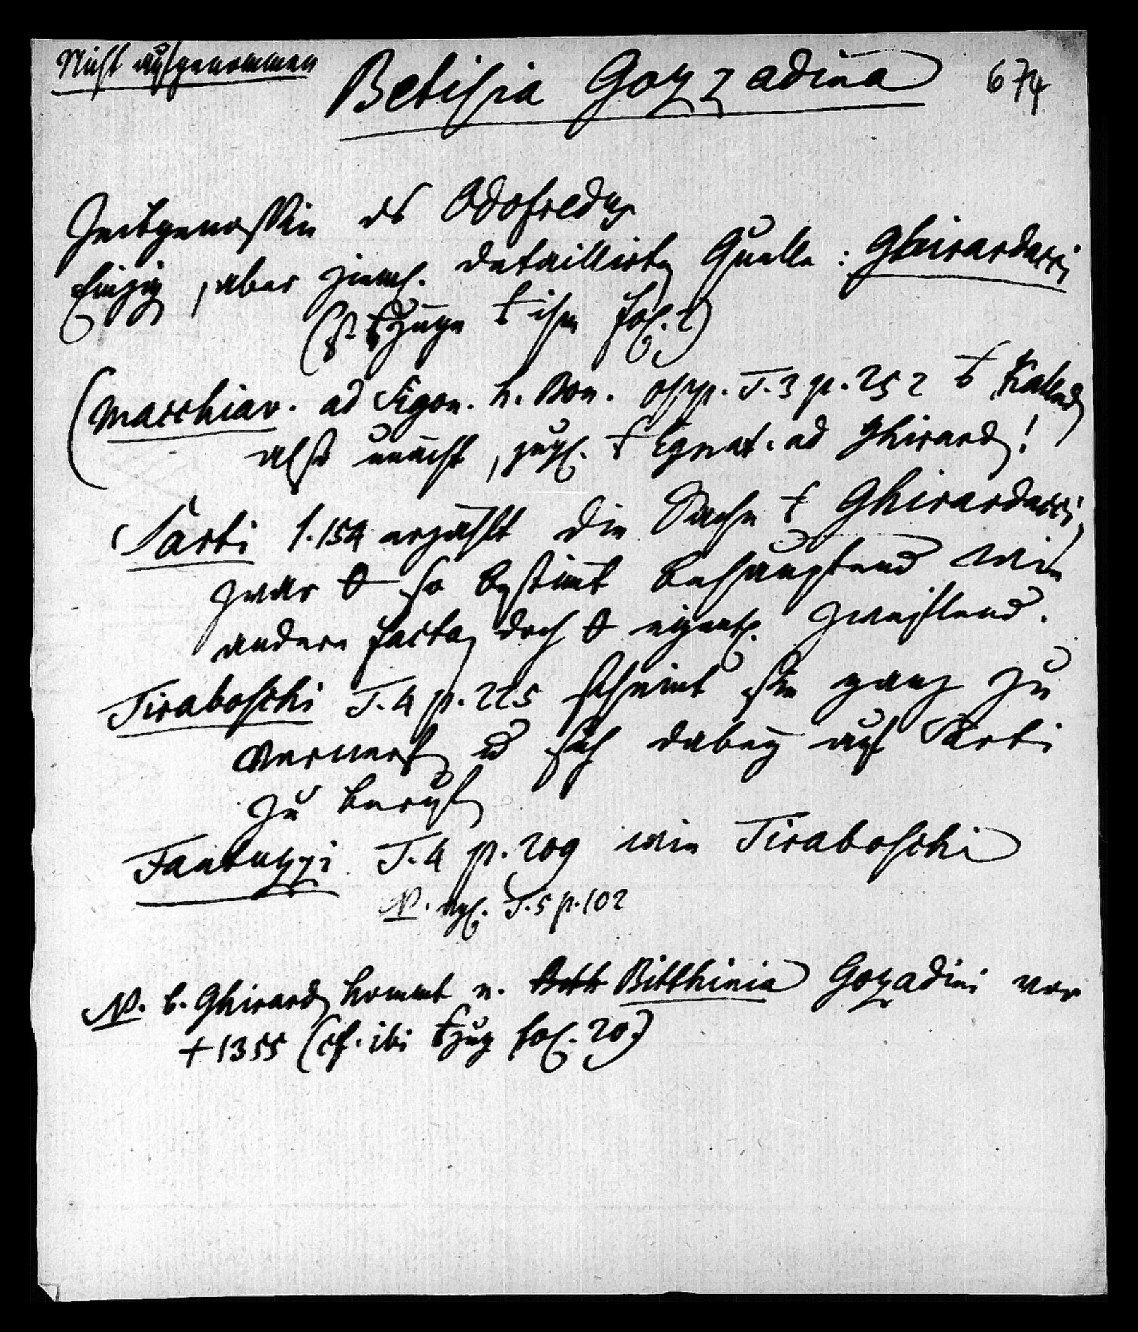 Nicht aufgenommen
Betisia Gozzadina 674
Zeitgenossin des Odofredus
Einzig, aber zieml. detaillirte Quelle: Ghirardacci
(s. Auszüge ihm fol. 2)
(Macchiav. ad Sigon. h. Bon. opp. T. 3 p. 252 Kalend
alß unächt, zugl. ad Ghirard!
Sarti 1.154 erzählt die Sache Ghirardacci,
zwar so bestimt behauptend wie
andere facta, doch eigentl. zweiflend.
Tiraboschi T. 4 p. 225 scheint sie ganz zu
verwerfen u sich dabey auf Sarti
zu berufen
Fantuzzi T. 4 p. 209 wie Tiraboschi
N. vgl. T. 5 p. 102
N. b. Ghirard kommt e. Bitthinia Gozadini vor
+ 1355 (cf. ibi fol. 20.)